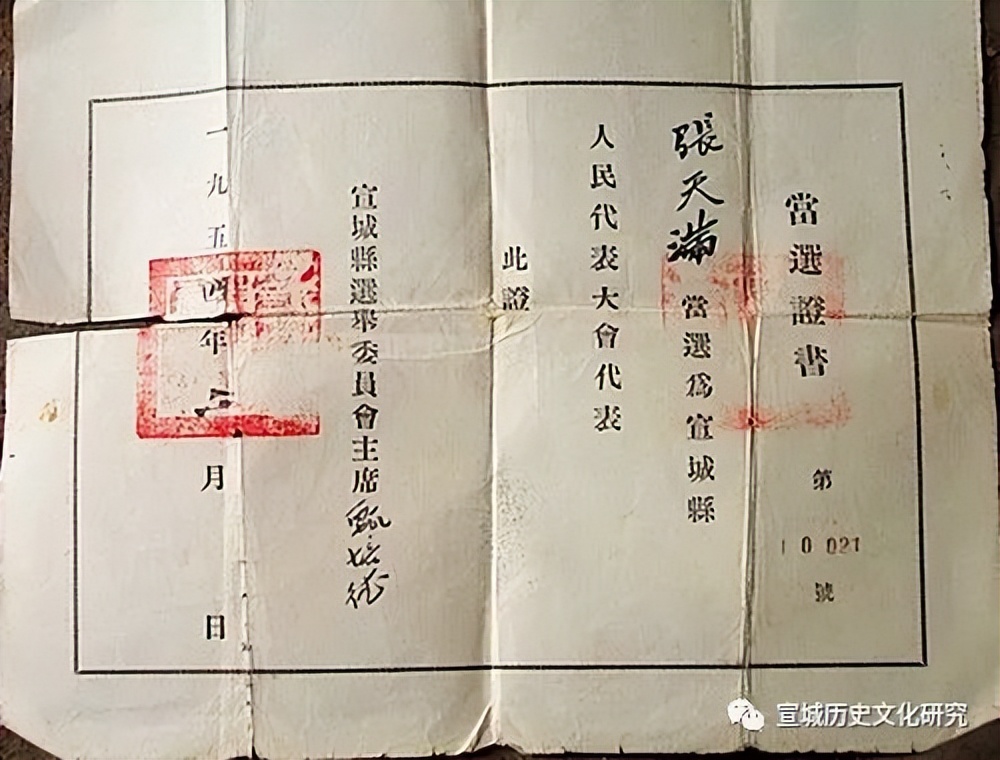 當選證書
第
10021
號
張天滿當選為宣城縣
人民代表大會代表
此證
宣城縣選舉委員會主席
一九五四年
月
日
宣城历史文化研究